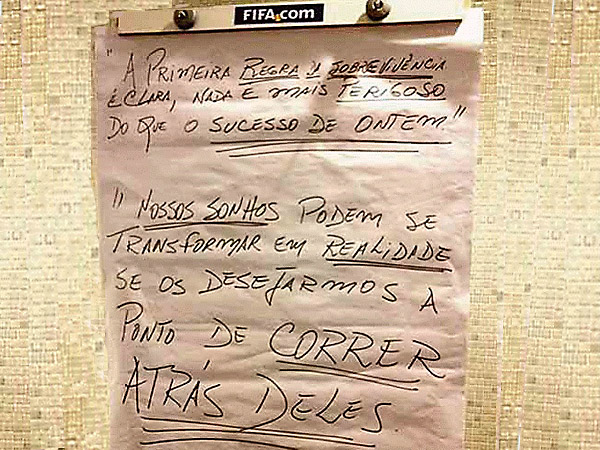 FIFA.com
"A PRIMEIRA REGRA DA SOBREVIVÊNCIA
É CLARA, NADA E MAIS PERIGOSO
DO QUE O SUCESSO DE ONTEM."
"NOSSOS SONHOS PODEM SE
TRANSFORMAR EM REALIDADE
SE OS DESEJARMOS A
PONTO DE CORRER
ATRÁS DELES.